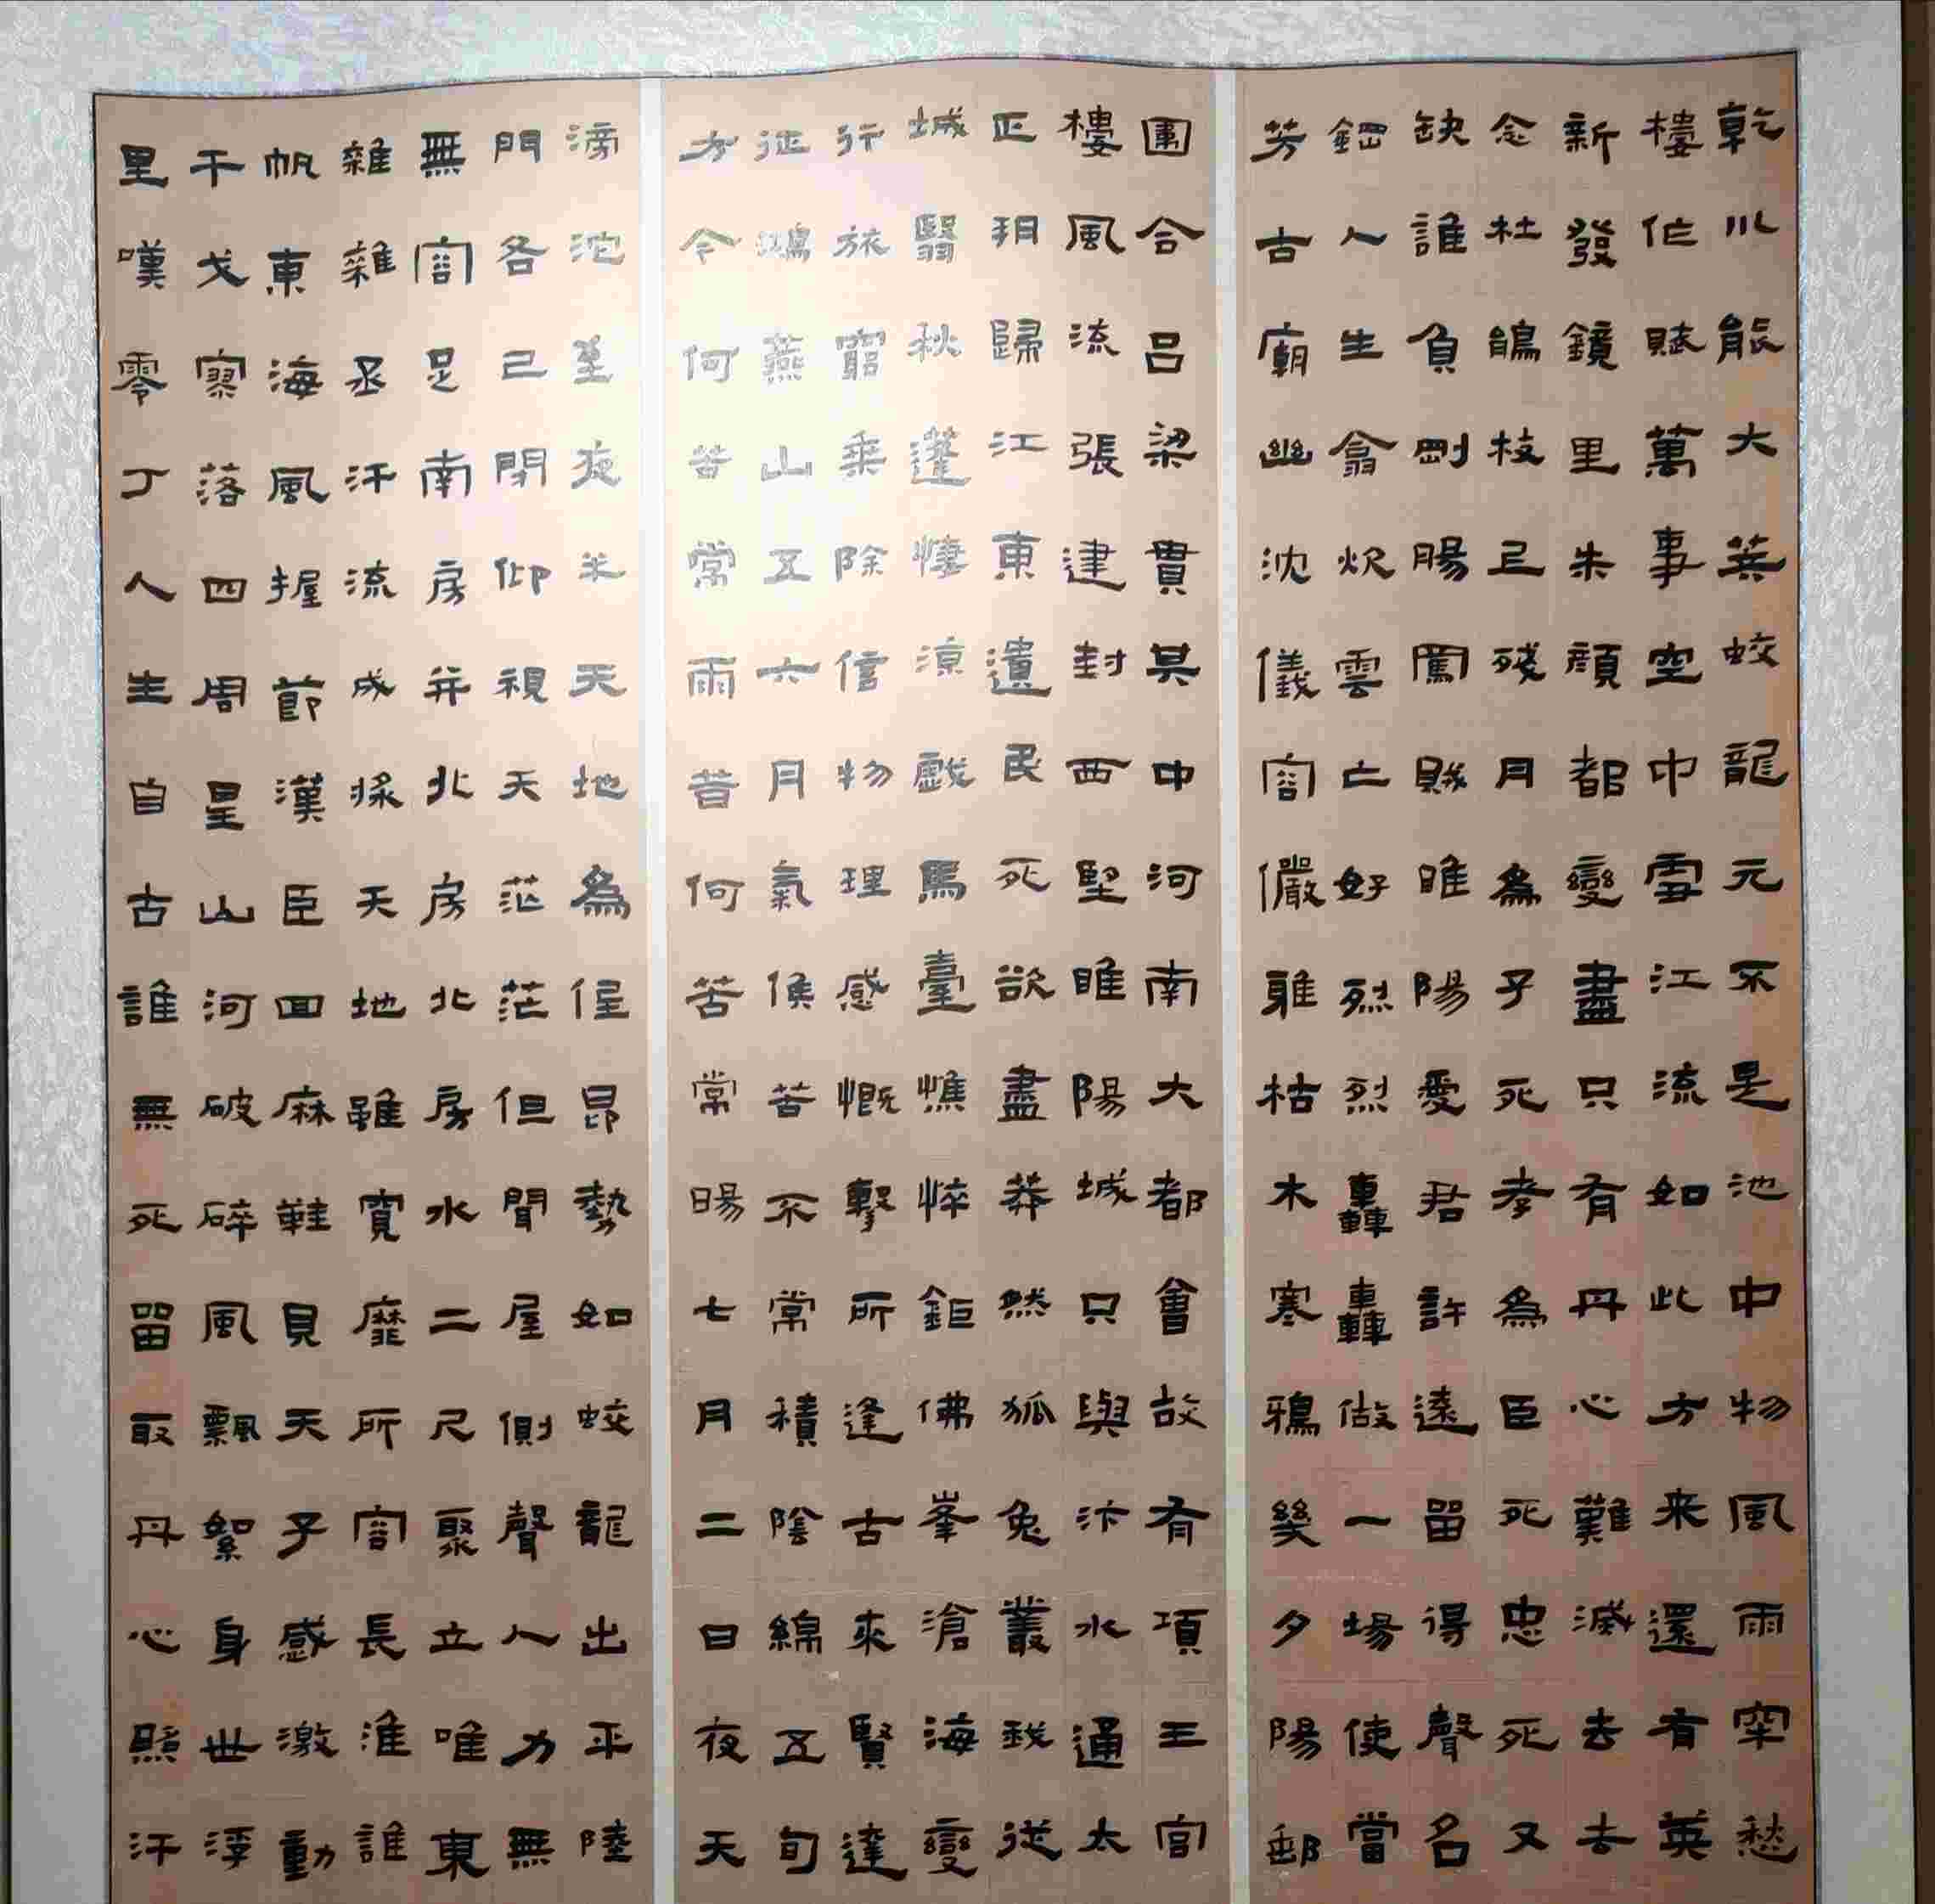 乾巛能大筭蛟龍元不是池中物風雨牢愁
樓作賦萬事空中雪江流如此方来還有英
新發鏡里朱顔都變盡只有丹心難滅去去
念杜鵑枝上殘月為子死孝為臣死忠死又
缺誰負剛腸罵賊睢陽愛君許遠留得聲名
鋼人生翕欻雲亡好烈烈轟轟做一場使當
芳古廟幽沈儀容儼雅枯木寒鴉幾夕陽郵
圍合呂梁貫其中河南大都會故有項王宮
樓風流張建封西望睢陽城只與汴水通太
正朔歸江東遺民死欲盡莽然狐兔叢我從
城翳秋蓬悽涼戲馬臺憔悴鉅佛峯滄海變
行旅窮乘除信物理感慨擊所逢古來賢達
征鴻燕山五六月氣候苦不常積陰綿五旬
方今何苦常雨昔何苦常暘七月二日夜天
滂沱至夜半天地為低昂勢如蛟龍出平陸
門各已閉仰視天茫茫但聞屋側聲人力無
無容足南房并北房北房水二尺聚立唯東
雜雜丞汗流成漿天地雖寬靡所容長淮誰
帆東海風握節漢臣回麻鞋見天子感激動
干戈寥落四周星山河破碎風飄絮身世浮
里嘆零丁人生自古誰無死留取丹心照汗